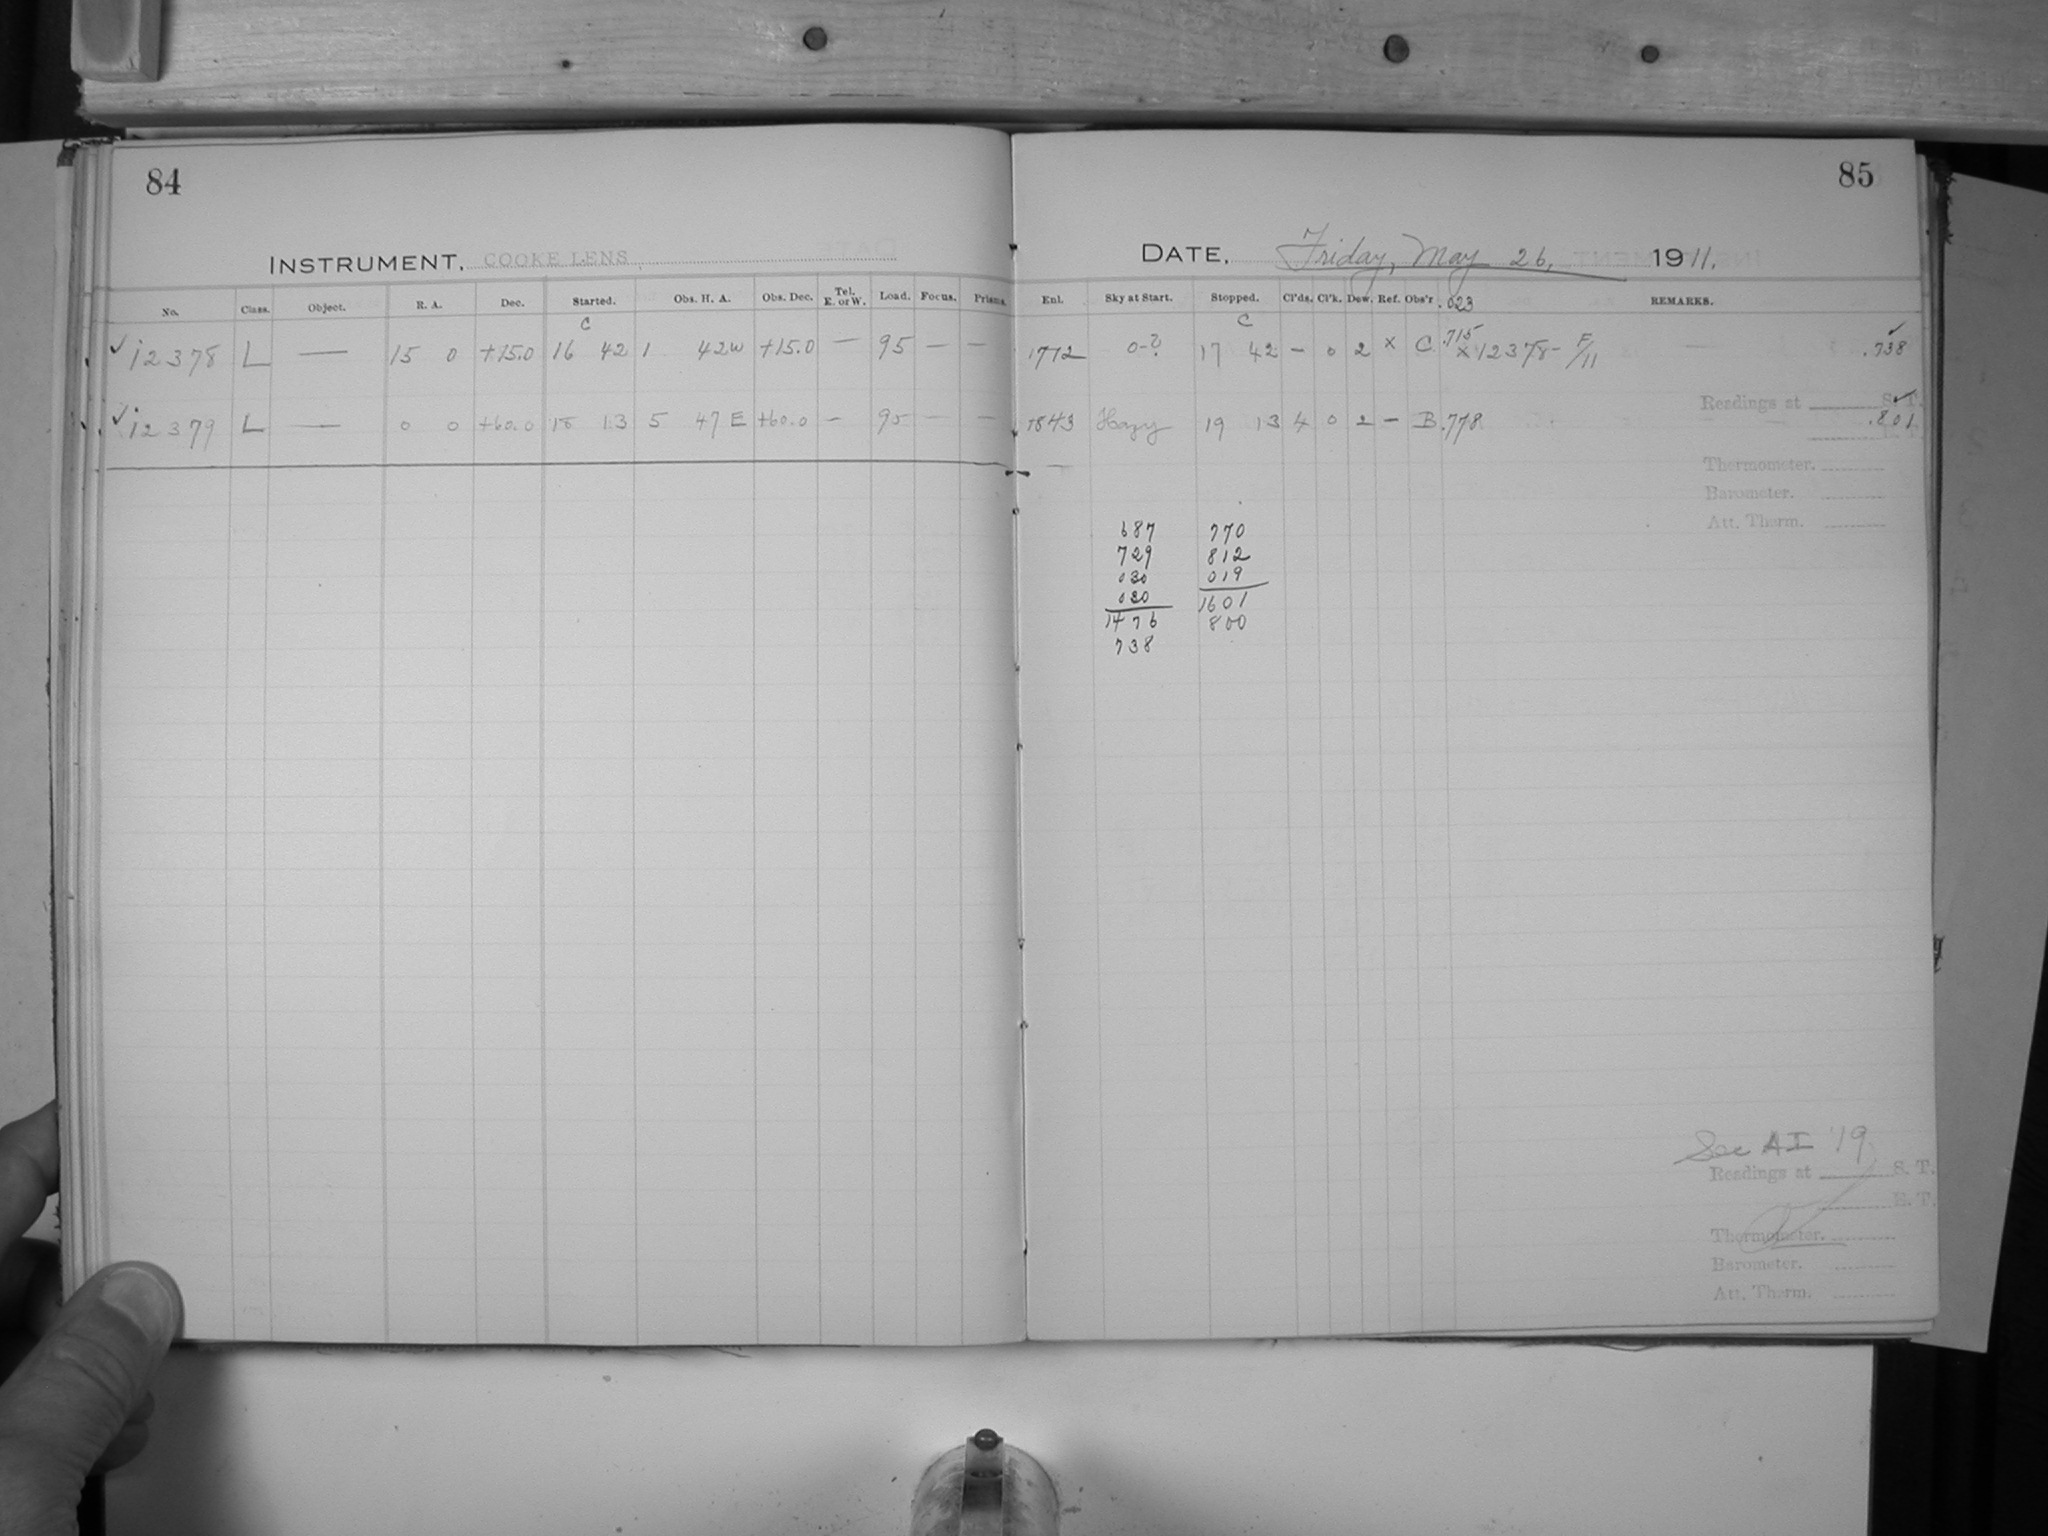 84
INSTRUMENT. COOKE LENS
No. Class. Object. R. A. Dec. Started. Obs. H. A. Obs. Dec. Tel. E. or W. Load. Focus. Prisms.
C
✓ i2378 L — 15 0 +15.0 16 42 1 42W +15.0 — 95 — —
✓ i2379 L — 0 0 +60.0 18 13 5 47 E +60.0 — 95 — —
85
DATE. Friday, May 26, 1911.
Enl. Sky at Start. Stopped. Cl'ds. Cl'k. Dew. Ref. Obs'r .023 REMARKS.
C
1772 0-? 17 42 — 0 2 x C .715 x 12378- F/11 — .738 ✓
Readings at S. T.
1843 Hazy 19 13 4 0 2 — B .778 .801 ✓
Thermometer.
Barometer.
Att. Therm.
687 770
729 812
030 019
030 1601
1476 800
738
See AI '19.
Readings at S. T.
E. T.
Thermometer.
Barometer.
Att. Therm.